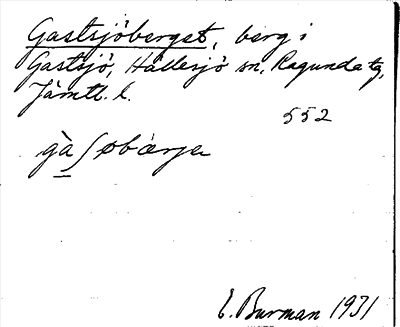 Gastsjöberget, berg i
Gastsjö, Hällesjö sn, Ragunda tg,
Jämtl. l.
552
gà ʃøbærjə
E. Burman 1931